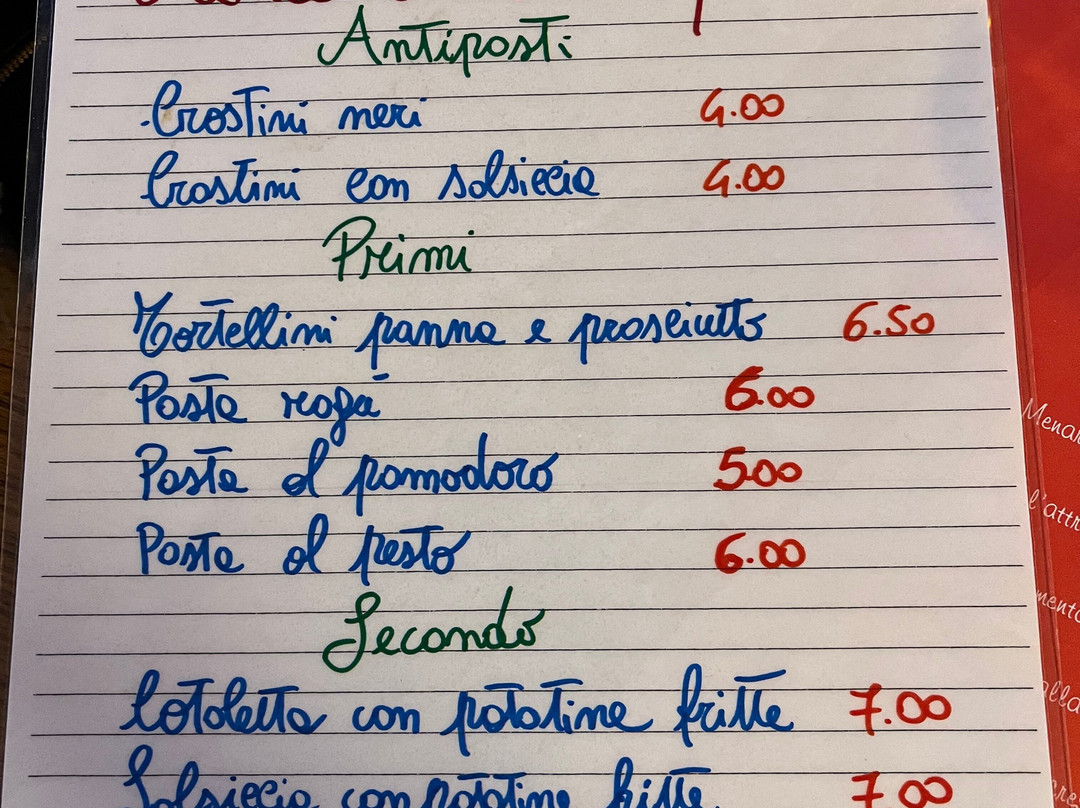 Antipasti
Crostini neri 4.00
Crostini con salsiccia 4.00
Primi
Tortellini panna e prosciutto 6.50
Pasta ragù 6.00
Pasta al pomodoro 5.00
Pasta al pesto 6.00
Secondo
Cotoletta con patatine fritte 7.00
Salsiccia con patatine fritte 7.00
l'attr
mento